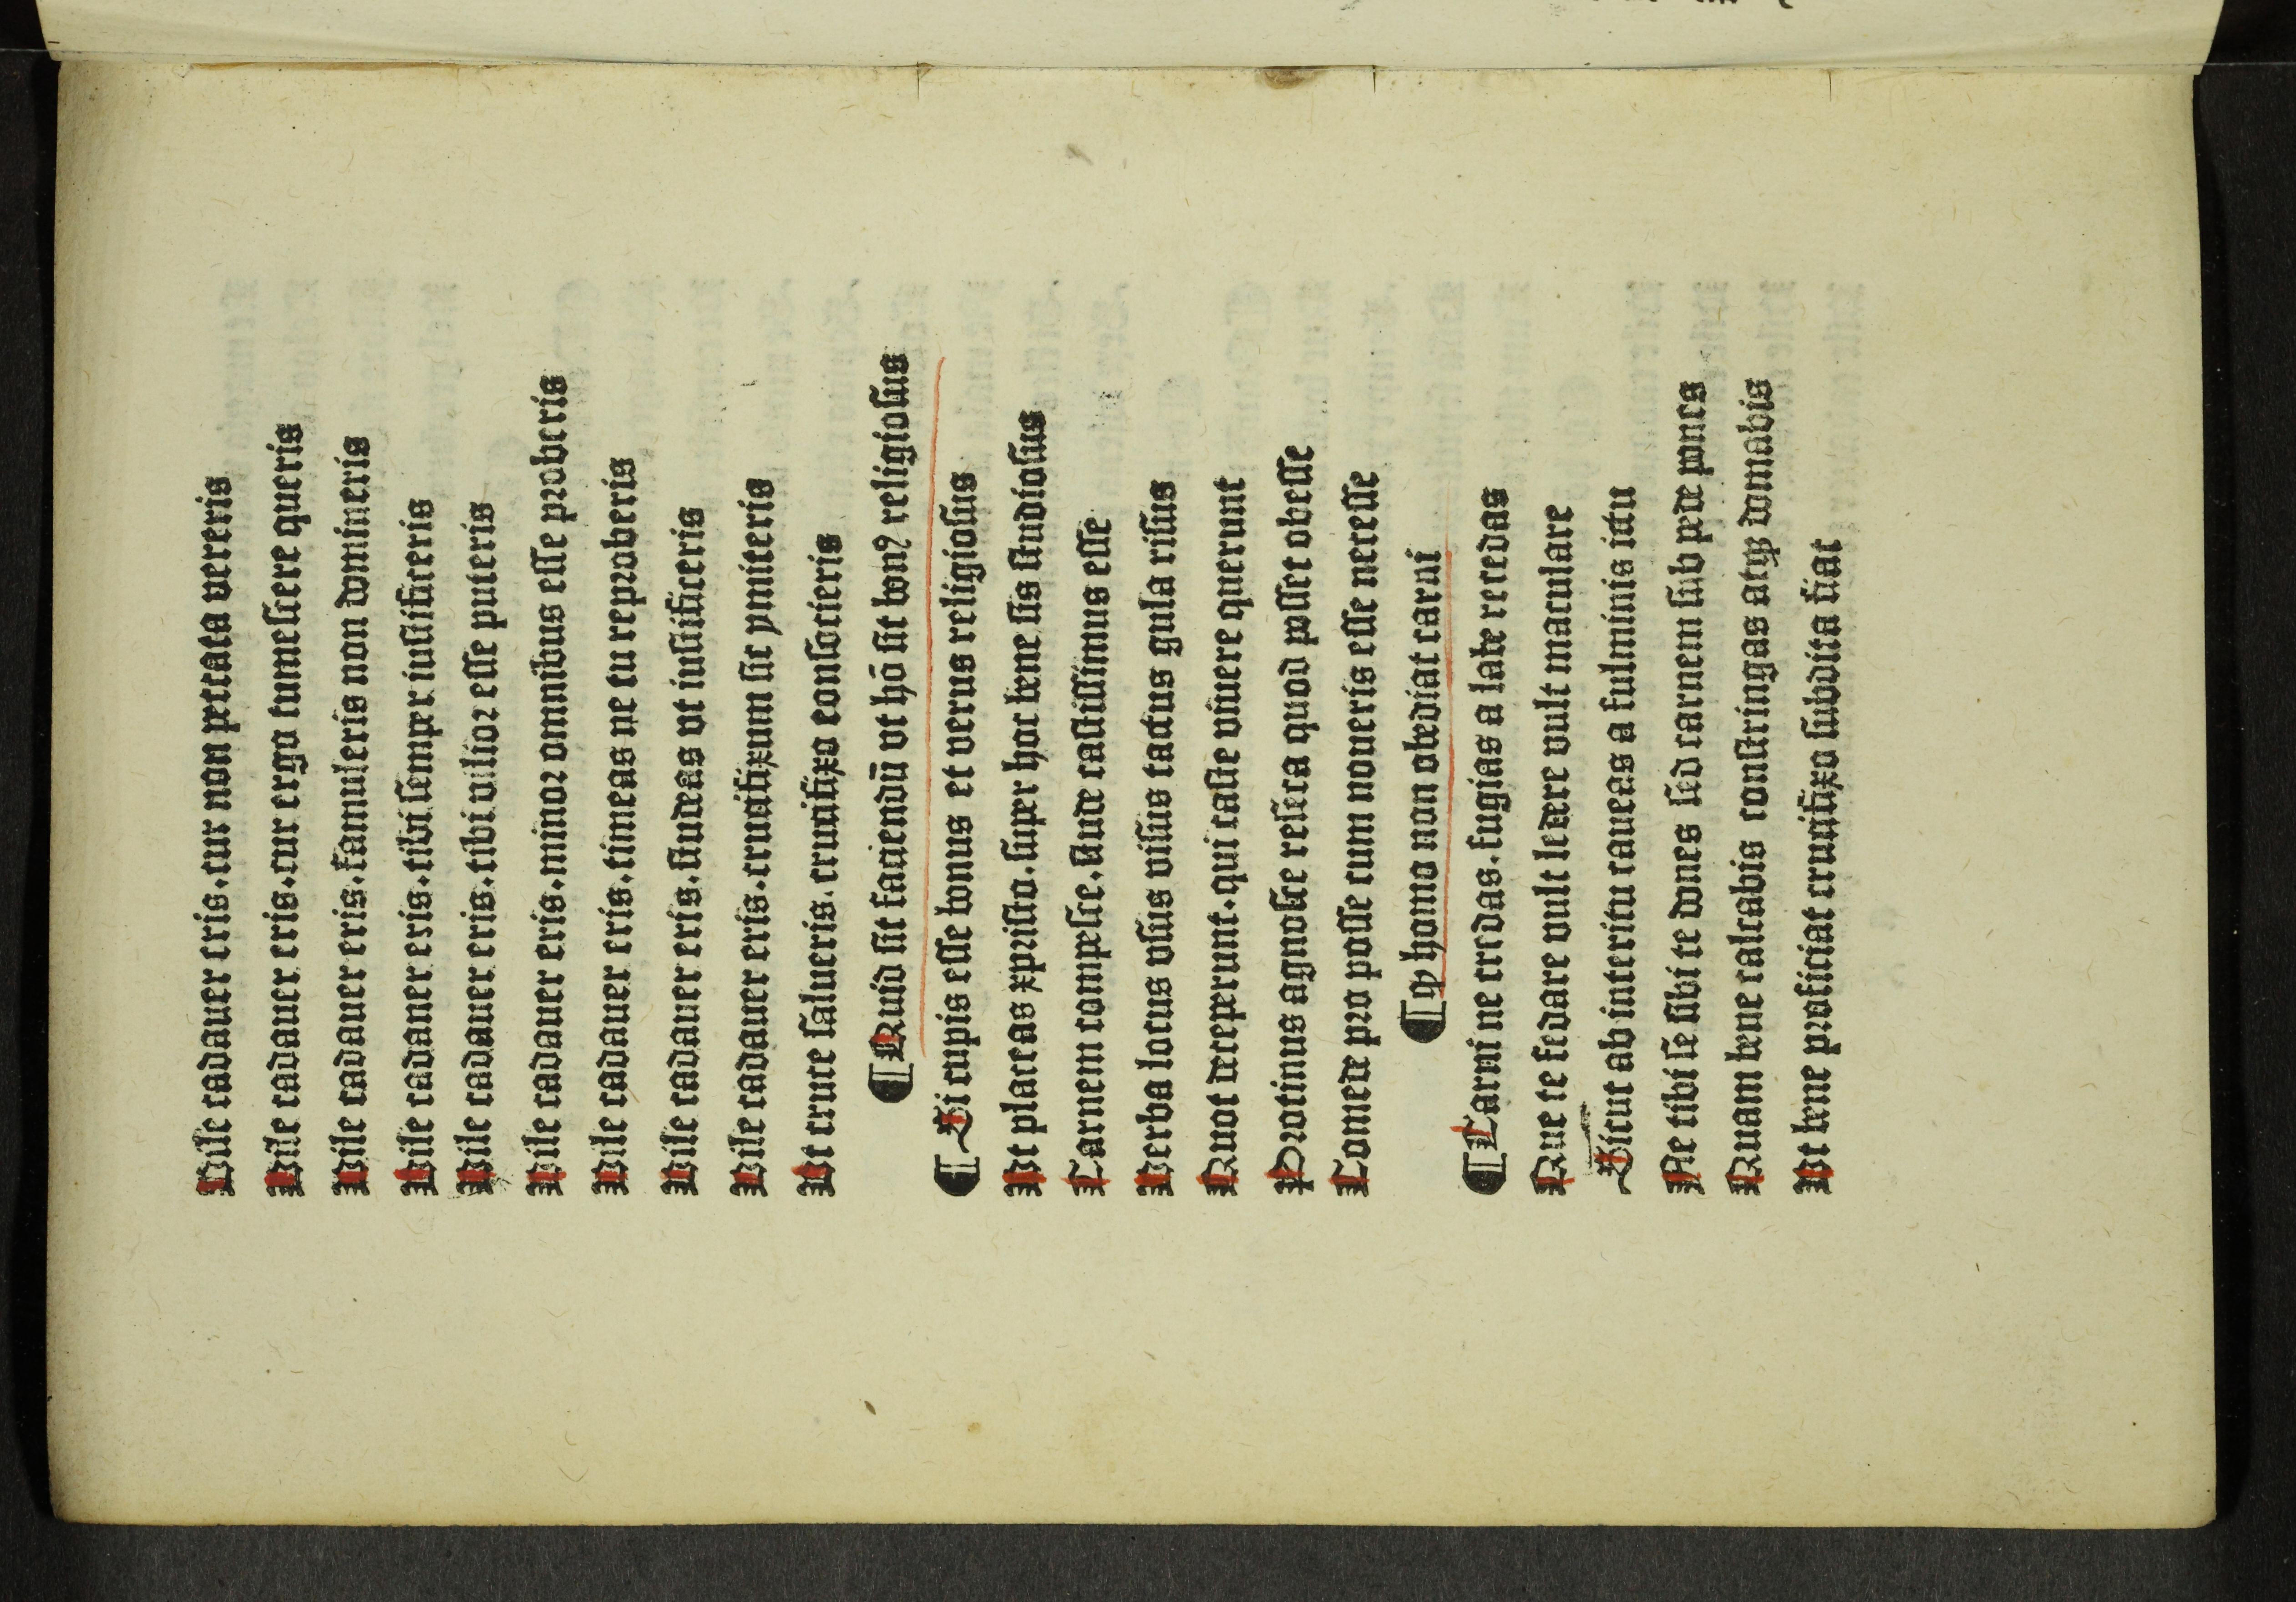 Vile cadauer eris.cur non peccata vereris
Vile cadauer eris.cur ergo tumescere queris
Vile cadauer eris.famuleris non domineris
Vile cadauer eris.tibi semper iustificeris
Vile cadauer eris.tibi vilior esse puteris
Vile cadauer eris.minor omnibus esse proberis
Vile cadauer eris.timeas ne tu reproberis
Vile cadauer eris.studeas vt iustificeris
Vile cadauer eris.crucifixum sic pniteris
Vt cruce salueris.crucifixo consocieris
¶ Quid sit faciendū vt hō sit bonꝰ religiosus
¶ Si cupis esse bonus et verus religiosus
Vt placeas xpristo.super hoc bene sis studiosus
Carnem compesce.stude castissimus esse
Verba locus vsus visus tactus gula risus
Quot deceperunt.qui caste viuere querunt
Protinus agnosce reseca quod posset obesse
Comede pro posse cum noueris esse necesse
¶ ꝙ homo non obediat carni
¶ Carni ne credas.fugias a labe recedas
Que te fedare vult ledere vult maculare
Sicut ab interitu caueas a fulminis ictu
Ne tibi se sibi te dones sed carnem sub pede pones
Quam bene calcabis constringas atqȝ domabis
Vt bene proficiat crucifixo subdita fiat